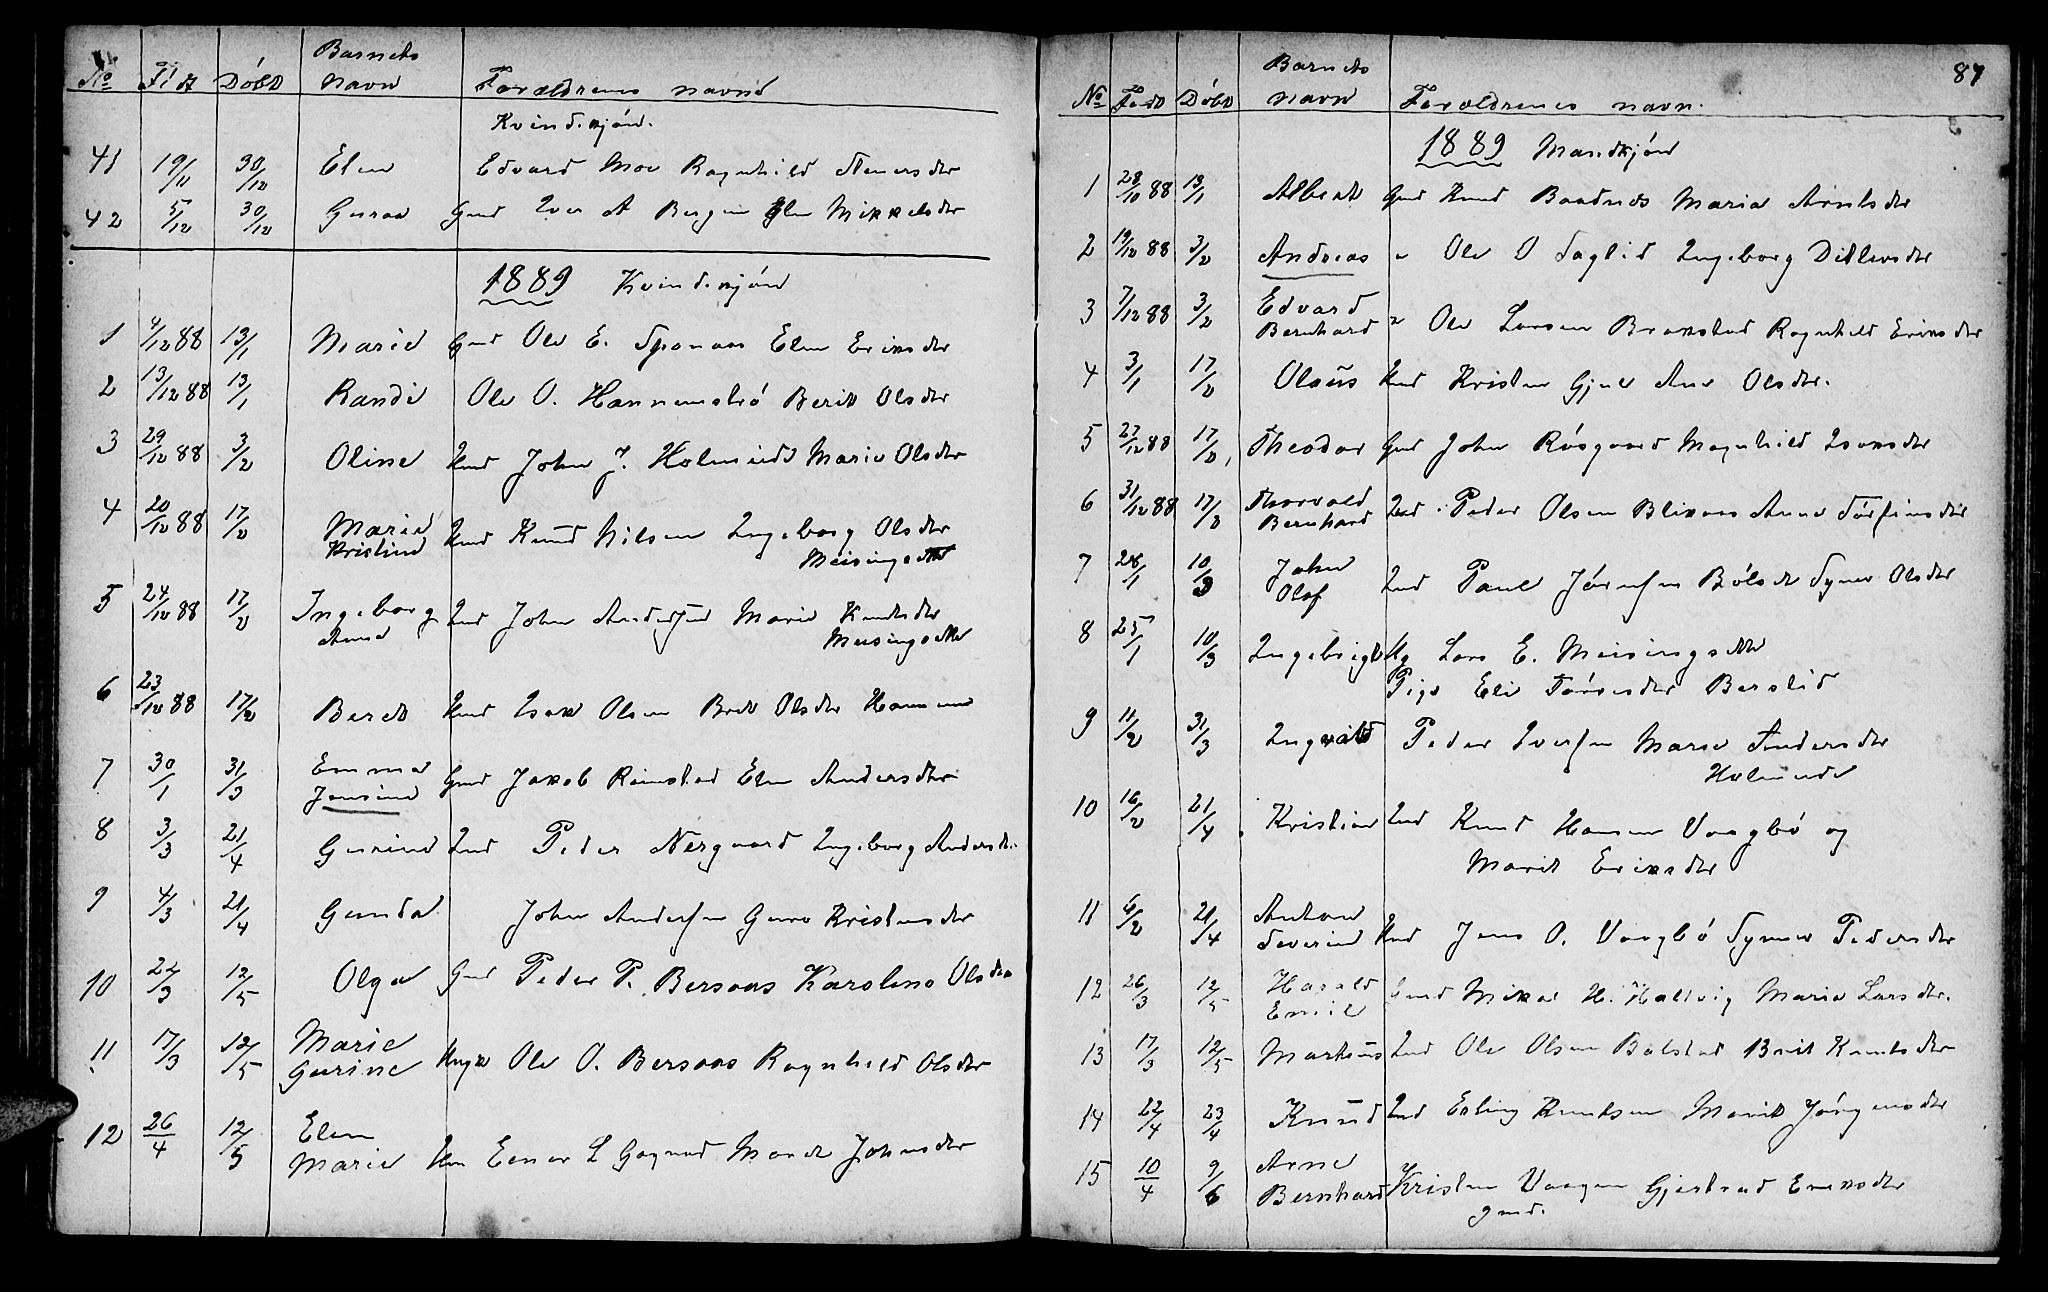 Barnets
No Född Döbt navn Forældrenes navne
Kvindkjön.
41 19/11 30/12 Elen Edvard Moe Ragnhild Steners dtr
42 5/12 30/12 Guroa Gmd Iver A Bergem Elen Mikkels dtr
1889 Kvindkjön
1 4/12 88 13/1 Marie Gmd Ole E. Sponaas Elen Eriks dtr
2 13/12 88 13/1 Randi Ole O. Hannemströ Berit Ols dtr
3 29/12 88 3/2 Oline Hmd John J. Holmeide Marie Ols dtr
4 20/12 88 17/2 Marie Hmd Knud Nilsen Ingeborg Ols dtr
Kristine Meisingset
5 24/12 88 17/2 Ingeborg Ind John Andersen Marie Knuds dtr
Anne Meisingset
6 23/12 88 17/2 Beret Hmd Isak Olsen Bret Ols dtr
7 30/1 31/3 Emma Gmd Jakob Rimstad Elen Anders dtr
Jensine
8 3/3 21/4 Gurine Ind Peder Nergaard Ingeborg Anders d..
9 4/3 21/4 Gunda John Andersen Guro Kristens dtr
10 22/3 12/5 Olga Gmd Peder P. Bersaas Karoline Ols dtr
11 17/3 12/5 Marie Ole O. Bersaas Ragnhild Ols dtr
Gurine
12 26/4 12/5 Elen
Marie Einar L Gagnad Marit Johns dtr
87
Barnets
No Född Döbt navn Forældrenes navn.
1889 Mandkjön
1 28/10 88 13/1 Albert Gmd Knud Baadnes Maria Arnts dtr
2 19/12 88 3/2 Andreas " Ole O Faglid Ingeborg Ditlevs dtr
3 7/12 88 3/2 Edvard " Ole Larsen Brakstad Ragnhild Eriks dtr
Bernhard
4 3/1 17/2 Olaus Hmd Kristen Gjul Ane Ols dtr.
5 27/12 88 17/2 Theodor Gmd John Rösgaard Magnhild Isaks dtr
6 31/12 88 17/2 Thorvald Ind Peder Olsen Blikaas Anne Torfins dtr
Bernhard
7 28/1 10/3 John Ind Paul Bölset Synnev Ols dtr
Olaf
8 25/1 10/3 Ingebrigt Lars E. Meisingset
Pige Eli Tores dtr Berslid
9 11/2 31/3 Ingvald Peder Iversen Marie Anders dtr
Holmeide
10 16/2 21/4 Kristian Ind Knud Hansen Vaagbö og
Marit Eriks dtr
11 6/2 21/4 Anton
Severin Hmd Jens O. Vaagbö Synnev Peders dtr
12 26/3 12/5 Harald Gmd Mikal H. Haltvig Marie Lars dtr.
Emil
13 17/3 12/5 Markus Ind Ole Olsen Bolstad Brit Knuts dtr
14 22/4 23/4 Knud Ind Erling Knutsen Marit Jörgens dtr
15 10/4 9/6 Arne
Bernhard Kristen Vaagen Gjertrud Eriks dtr
gmd.